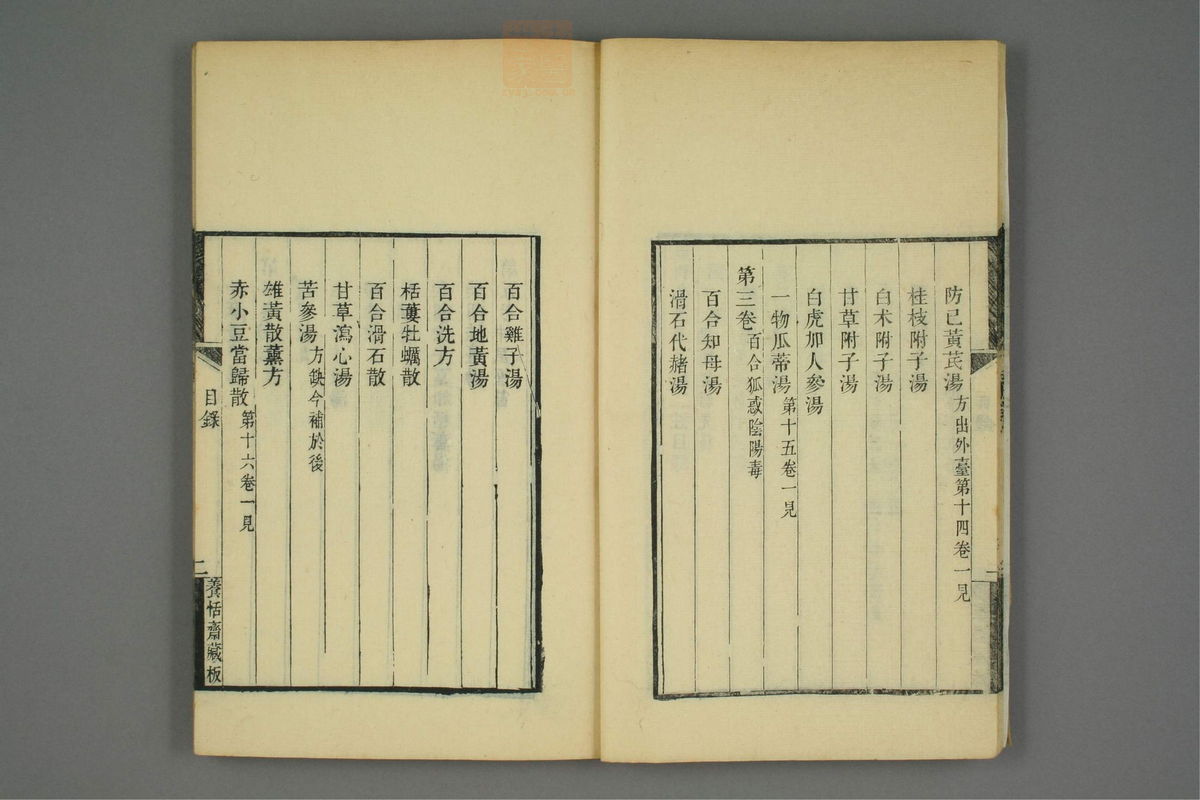 防已黃芪湯 方出外臺第十四卷一見
桂枝附子湯
白术附子湯
甘草附子湯
白虎加人參湯
一物瓜蒂湯 第十五卷一見
第三卷 百合狐惑陰陽毒
百合知母湯
滑石代赭湯
百合雞子湯
百合地黃湯
百合洗方
栝蔞牡蠣散
百合滑石散
甘草瀉心湯
苦參湯 方缺今補於後
雄黃散薰方
赤小豆當歸散 第十六卷一見
目錄
二
養恬齋藏板